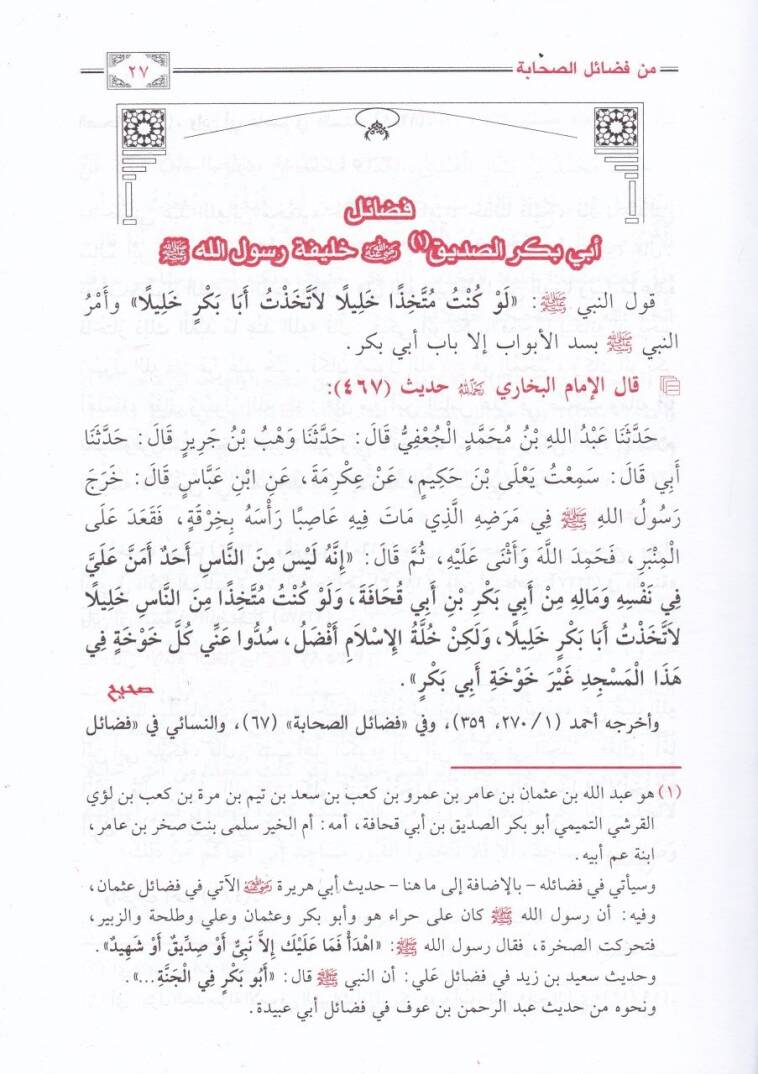 من فضائل الصحابة
٢٧
فضائل
أبي بكر الصديق(١) رضي الله عنه خليفة رسول الله ﷺ
قول النبي ﷺ: «لَوْ كُنْتُ مُتَّخِذًا خَلِيلًا لَاتَّخَذْتُ أَبَا بَكَرٍ خَلِيلًا» وأَمْرُ
النبي ﷺ بسد الأبواب إلا باب أبي بكر.
قال الإمام البخاري رحمه الله حديث (٤٦٧):
حَدَّثَنَا عَبْدُ اللهِ بْنُ مُحَمَّدٍ الْجُعْفِيُّ قَالَ: حَدَّثَنَا وَهْبُ بْنُ جَرِيرٍ قَالَ: حَدَّثَنَا
أَبِي قَالَ: سَمِعْتُ يَعْلَى بْنَ حَكِيمٍ، عَنْ عِكْرِمَةَ، عَنِ ابْنِ عَبَّاسٍ قَالَ: خَرَجَ
رَسُولُ اللهِ ﷺ فِي مَرَضِهِ الَّذِي مَاتَ فِيهِ عَاصِبًا رَأْسَهُ بِخِرْقَةٍ، فَقَعَدَ عَلَى
الْمِنْبَرِ، فَحَمِدَ اللَّهَ وَأَثْنَى عَلَيْهِ، ثُمَّ قَالَ: «إِنَّهُ لَيْسَ مِنَ النَّاسِ أَحَدٌ أَمَنَّ عَلَيَّ
فِي نَفْسِهِ وَمَالِهِ مِنْ أَبِي بَكْرِ بْنِ أَبِي قُحَافَةَ، وَلَوْ كُنْتُ مُتَّخِذًا مِنَ النَّاسِ خَلِيلًا
لَاتَّخَذْتُ أَبَا بَكْرٍ خَلِيلًا، وَلَكِنْ خُلَّةُ الْإِسْلَامِ أَفْضَلُ، سُدُّوا عَنِّي كُلَّ خَوْخَةٍ فِي
هَذَا الْمَسْجِدِ غَيْرَ خَوْخَةِ أَبِي بَكْرٍ».
صحيح
وأخرجه أحمد (٢٧٠/١، ٣٥٩)، وفي «فضائل الصحابة» (٦٧)، والنسائي في «فضائل
(١) هو عبد الله بن عثمان بن عامر بن عمرو بن كعب بن سعد بن تيم بن مرة بن كعب بن لؤي
القرشي التميمي أبو بكر الصديق بن أبي قحافة، أمه: أم الخير سلمى بنت صخر بن عامر،
ابنة عم أبيه.
وسيأتي في فضائله -بالإضافة إلى ما هنا- حديث أبي هريرة رضي الله عنه الآتي في فضائل عثمان،
وفيه: أن رسول الله ﷺ كان على حراء هو وأبو بكر وعثمان وعلي وطلحة والزبير،
فتحركت الصخرة، فقال رسول الله ﷺ: «اهْدَأْ فَمَا عَلَيْكَ إِلاَّ نَبِيٌّ أَوْ صِدِّيقٌ أَوْ شَهِيدٌ».
وحديث سعيد بن زيد في فضائل عَلي: أن النبي ﷺ قال: «أَبُو بَكْرٍ فِي الْجَنَّةِ...».
ونحوه من حديث عبد الرحمن بن عوف في فضائل أبي عبيدة.